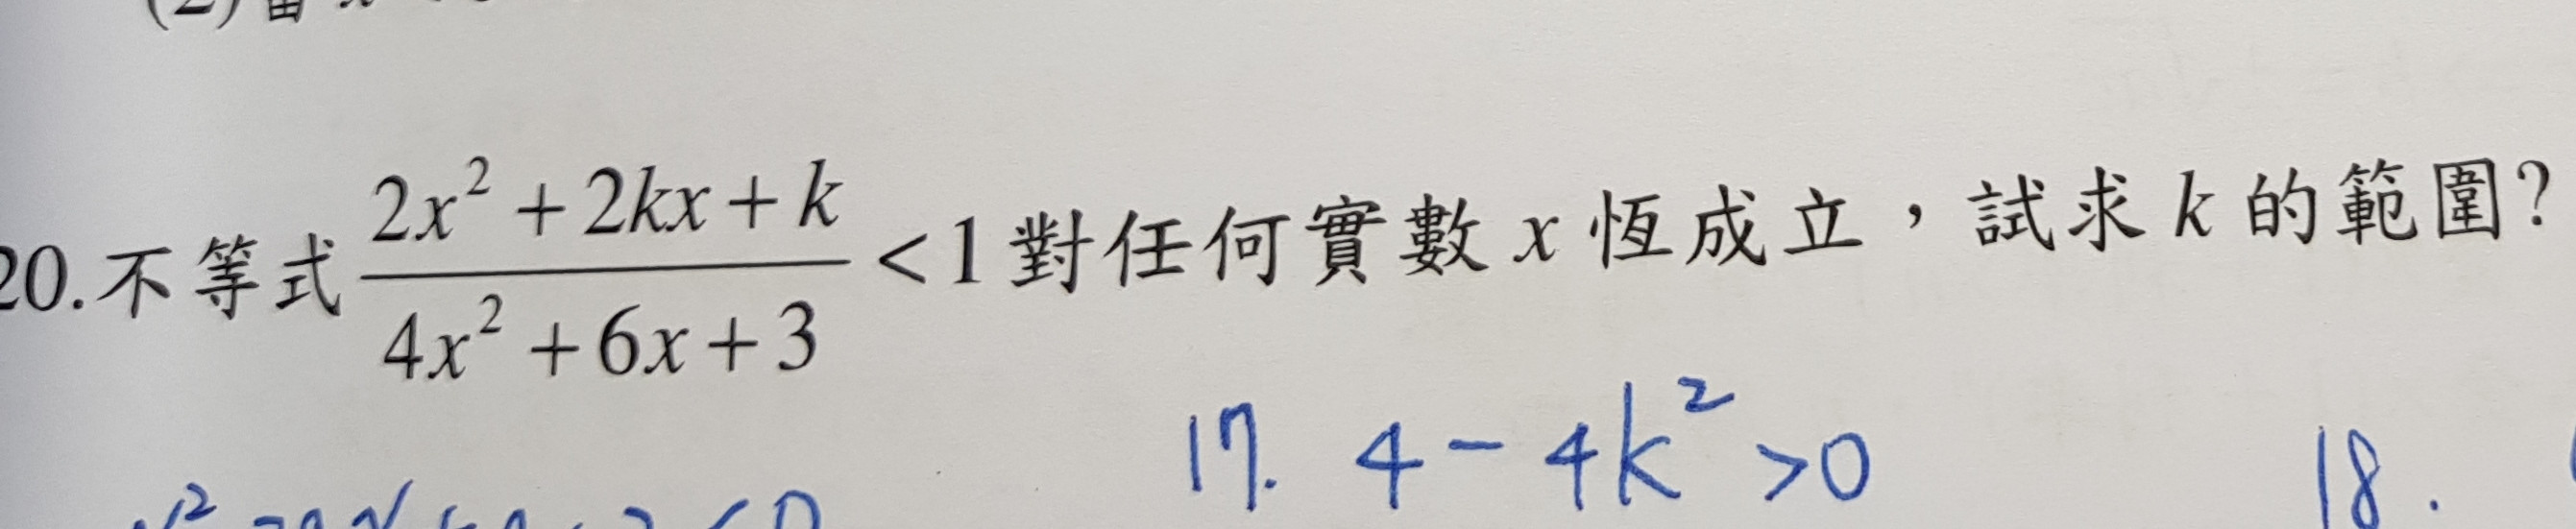 (2)當
20.不等式 \frac{2x^2+2kx+k}{4x^2+6x+3}<1對任何實數x恆成立，試求k的範圍?
17. 4-4k^2>0
18.